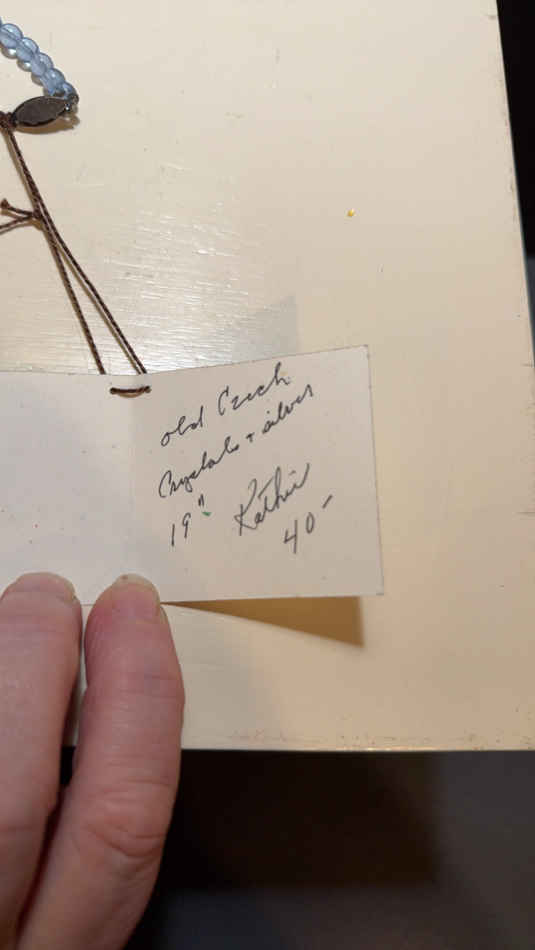 old Czech
Crystals + silver
19" Kathie
40-